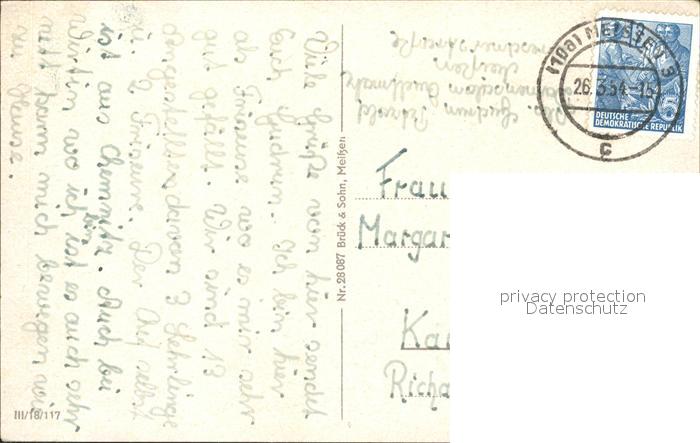 Viele Grüße von hier sendet
Euch Gudrun. Ich bin hier
als Friseuse wo es mir sehr
gut gefällt. Wir sind 13
Angestellte davon 3 Lehrlinge
u. 2 Friseure. Der Chef selbst
ist aus Chemnitz. Auch bei
Wirtin, wo ich bin ist es auch sehr
nett kann mich bewegen wie
zu Hause.
III/18/117
Nr. 28087 Brück & Sohn, Meißen
Abs. Gudrun
Meißen
(10a) MEISSEN 3
26.3.54.-15
c
DEUTSCHE
DEMOKRATISCHE REPUBLIK
5
Frau
Margar
Ka
Richa
privacy protection
Datenschutz